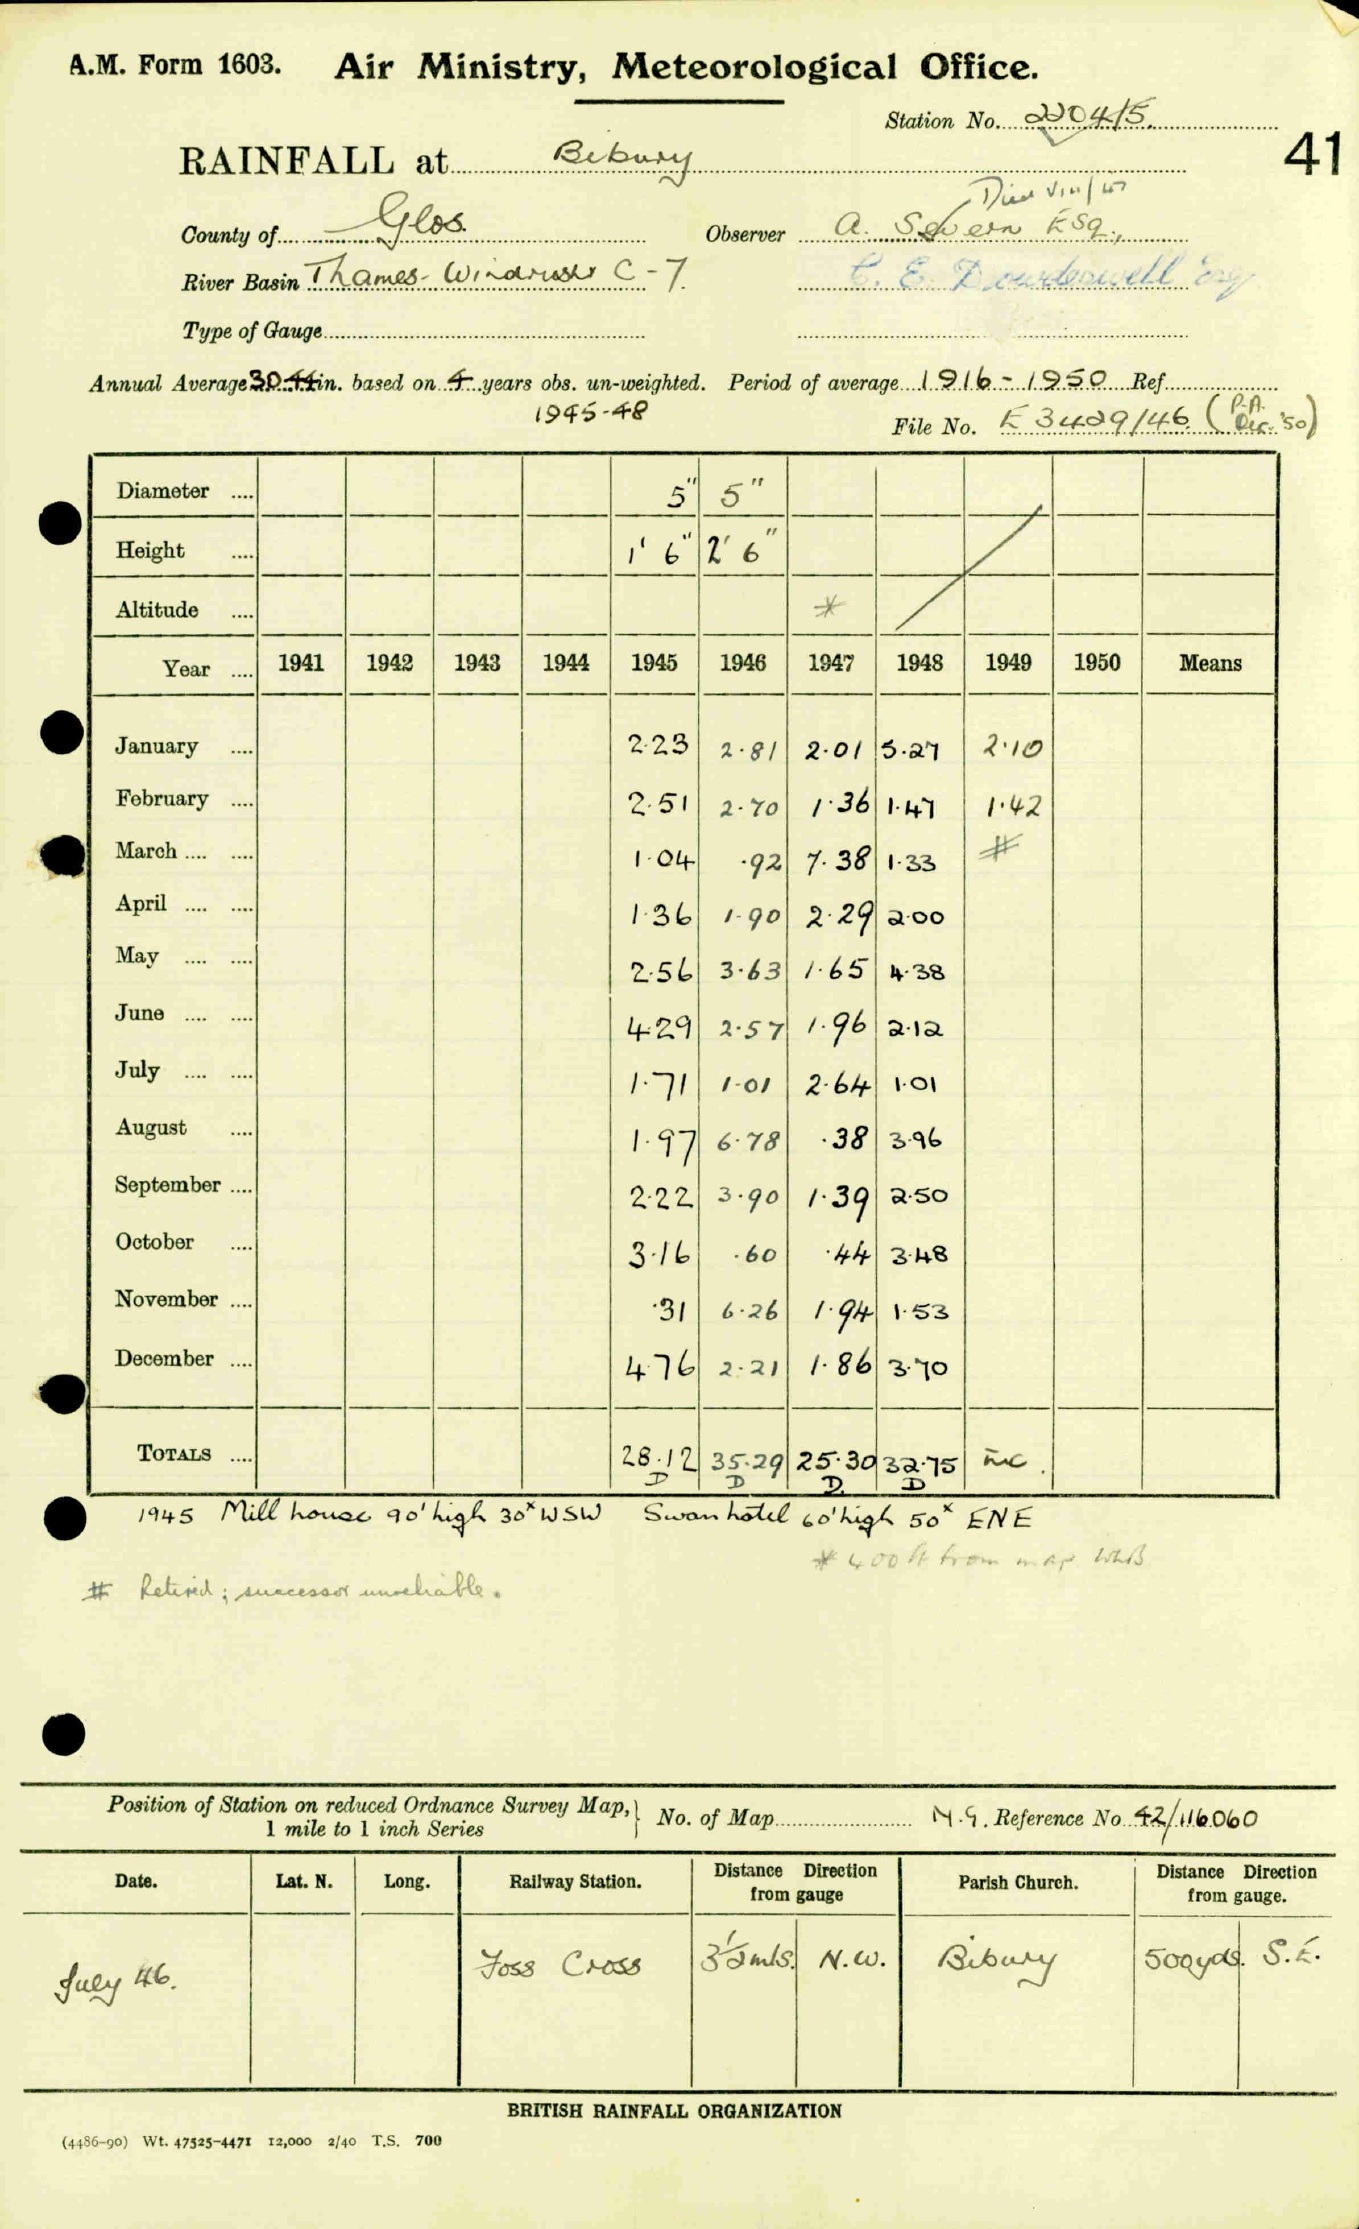 A.M. Form 1603. Air Ministry, Meteorological Office.
Station No. 2204/5.
41
RAINFALL at Bibury
Died VIII/47
County of Glos. Observer A. Severn Esq.,
River Basin Thames-Windrush C-7. C. E. Dowdeswell Esq
Type of Gauge
Annual Average 30.44 in. based on 4 years obs. un-weighted. Period of average 1916-1950 Ref.
1945-48 File No. E 3429/46 (P.A. Dec. '50)
Diameter .... 5" 5"
Height .... 1' 6" 2' 6"
Altitude .... *
Year .... 1941 1942 1943 1944 1945 1946 1947 1948 1949 1950 Means
January .... 2.23 2.81 2.01 5.27 2.10
February .... 2.51 2.70 1.36 1.47 1.42
March .... .... 1.04 .92 7.38 1.33 #
April .... .... 1.36 1.90 2.29 2.00
May .... .... 2.56 3.63 1.65 4.38
June .... .... 4.29 2.57 1.96 2.12
July .... .... 1.71 1.01 2.64 1.01
August .... 1.97 6.78 .38 3.96
September .... 2.22 3.90 1.39 2.50
October .... 3.16 .60 .44 3.48
November .... .31 6.26 1.94 1.53
December .... 4.76 2.21 1.86 3.70
TOTALS .... 28.12 35.29 25.30 32.75 inc.
D D D D
1945 Mill house 90' high 30x WSW Swan hotel 60' high 50x ENE
* 400 ft from map
# Retired; successor unreliable.
Position of Station on reduced Ordnance Survey Map, 1 mile to 1 inch Series } No. of Map N.G. Reference No 42/116060
Date. Lat. N. Long. Railway Station. Distance Direction from gauge Parish Church. Distance Direction from gauge.
July 46. Foss Cross 3½ mls. N.W. Bibury 500yds. S.E.
BRITISH RAINFALL ORGANIZATION
(4486-90) Wt. 47525-4471 12,000 2/40 T.S. 700